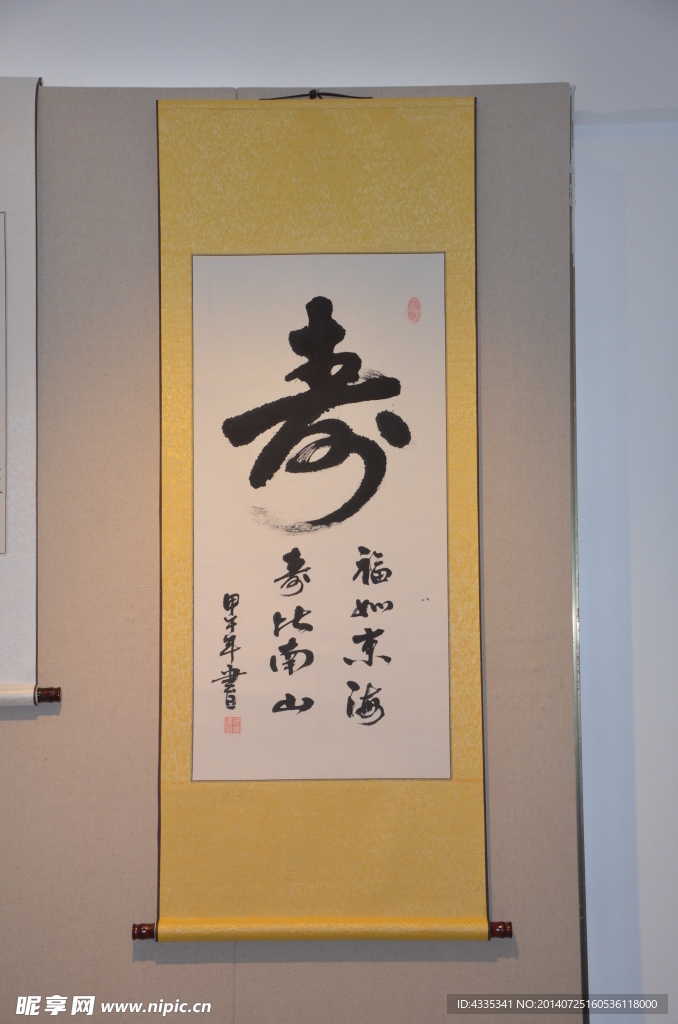 寿
福如东海
寿比南山
甲午年书
昵享网 www.nipic.cn
ID:4335341 NO:20140725160536118000